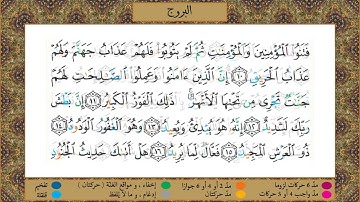 البروج
فَتَنُوا۟ ٱلْمُؤْمِنِينَ وَٱلْمُؤْمِنَٰتِ ثُمَّ لَمْ يَتُوبُوا۟ فَلَهُمْ عَذَابُ جَهَنَّمَ وَلَهُمْ
عَذَابُ ٱلْحَرِيقِ ١٠ إِنَّ ٱلَّذِينَ ءَامَنُوا۟ وَعَمِلُوا۟ ٱلصَّٰلِحَٰتِ لَهُمْ
جَنَّٰتٌ تَجْرِى مِن تَحْتِهَا ٱلْأَنْهَٰرُ ۚ ذَٰلِكَ ٱلْفَوْزُ ٱلْكَبِيرُ ١١ إِنَّ بَطْشَ
رَبِّكَ لَشَدِيدٌ ١٢ إِنَّهُۥ هُوَ يُبْدِئُ وَيُعِيدُ ١٣ وَهُوَ ٱلْغَفُورُ ٱلْوَدُودُ ١٤
ذُو ٱلْعَرْشِ ٱلْمَجِيدُ ١٥ فَعَّالٌ لِّمَا يُرِيدُ ١٦ هَلْ أَتَىٰكَ حَدِيثُ ٱلْجُنُودِ
مدّ ٦ حركات لزوما مدّ ٢ أو ٤ أو ٦ جوازا إخفاء، ومواقع الغنّة (حركتان) تفخيم
مدّ واجب ٤ أو ٥ حركات مدّ حركتان إدغام، وما لا يُلفظ قلقلة